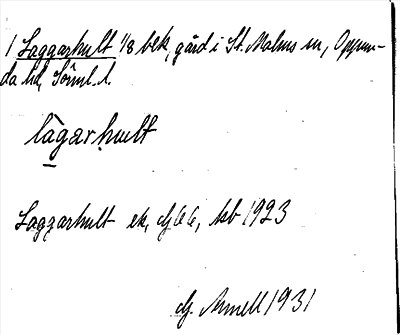 1 Laggarhult 1/8 bek, gård i St. Malms sn, Oppun-
da hd, Söml. l.
làgarhult
Laggarhult ek, kb 1923
Arnell 1931